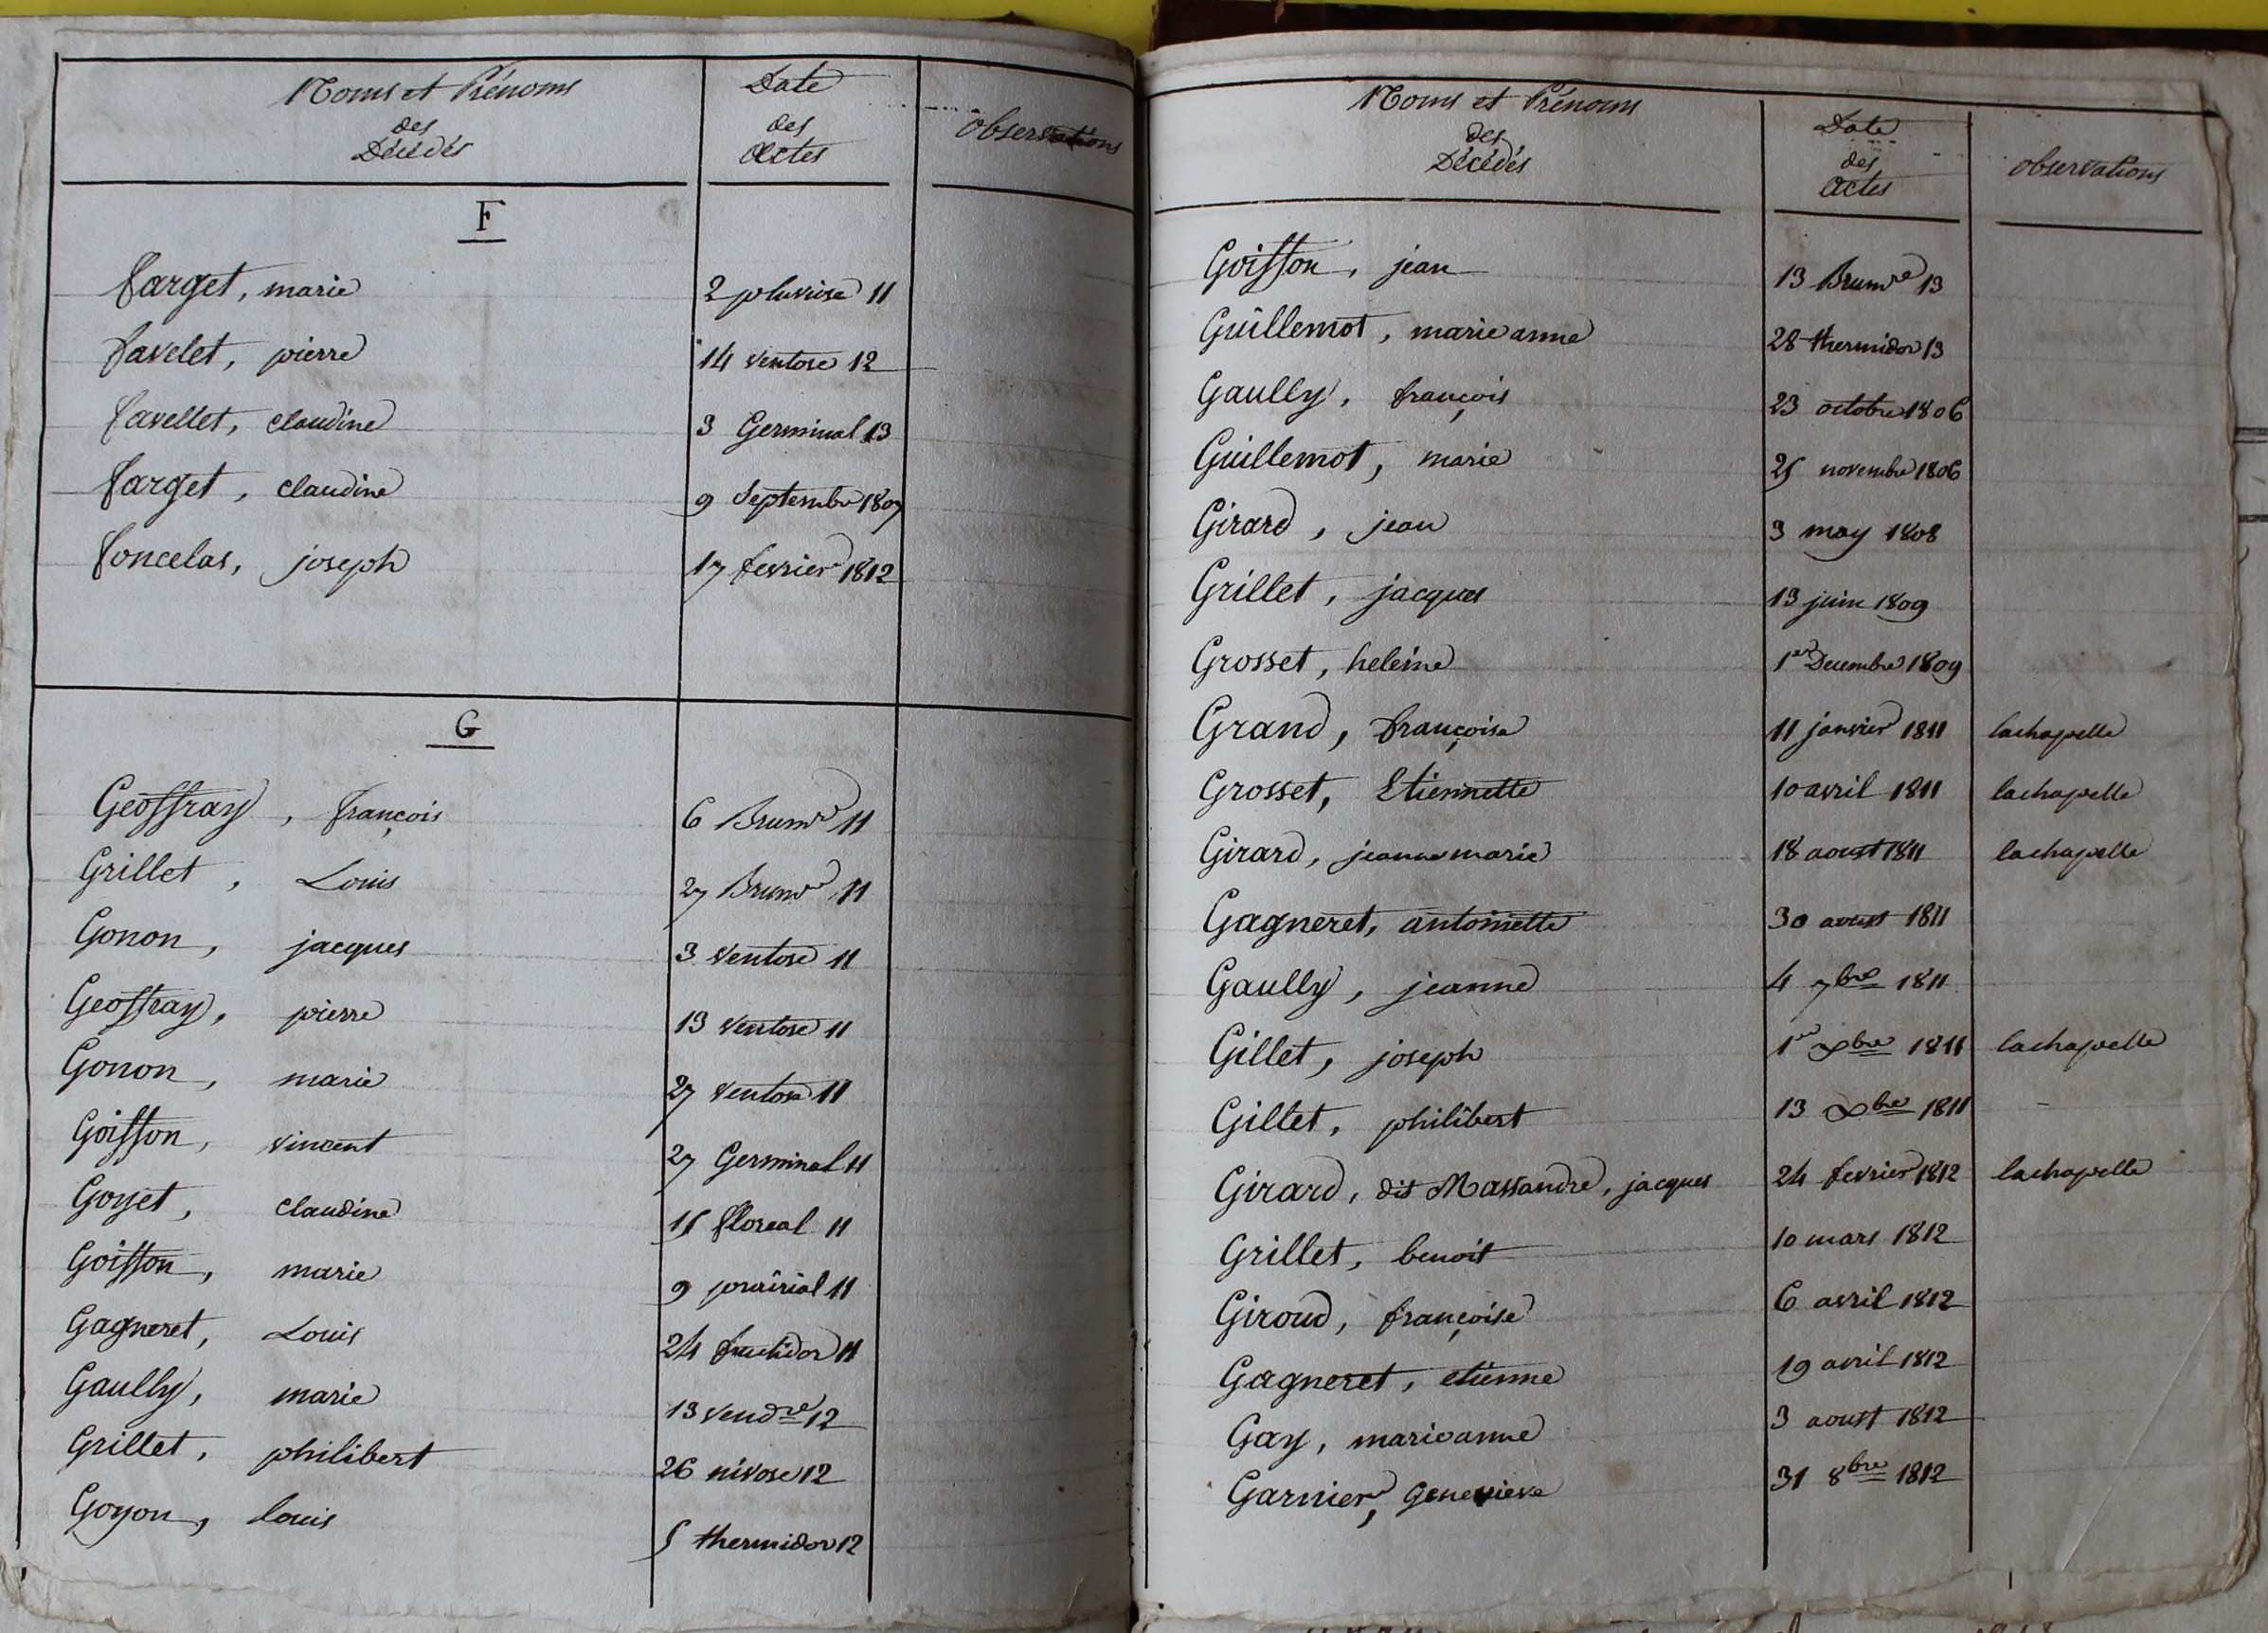 Noms et Prénoms
des
Décédés
Date
des
Actes
Observations
F
farget, marie 2 pluviose 11
favelet, pierre 14 ventose 12
favellet, claudine 3 Germinal 13
farget, claudine 9 Septembre 1807
foncelas, joseph 17 fevrier 1812
G
Geoffray, françois 6 Brumre 11
Grillet, Louis 27 Brumre 11
Gonon, jacques 3 ventose 11
Geoffray, pierre 13 ventose 11
Gonon, marie 27 ventose 11
Goisson, vincent 27 Germinal 11
Goyet, claudine 15 floreal 11
Goisson, marie 9 prairial 11
Gagneret, Louis 24 fructidor 11
Gaully, marie 13 vendre 12
Grillet, philibert 26 nivose 12
Goyon, louis 5 thermidor 12
Noms et Prénoms
des
Décédés
Date
des
Actes
observations
Goisson, jean 13 Brumre 13
Guillemot, marie anne 28 thermidor 13
Gaully, françois 23 octobre 1806
Guillemot, marie 25 novembre 1806
Girard, jean 3 may 1808
Grillet, jacques 13 juin 1809
Grosset, heleine 1er Decembre 1809
Grand, françoise 11 janvier 1811 lachapelle
Grosset, Etiennette 10 avril 1811 lachapelle
Girard, jeanne marie 18 aoust 1811 lachapelle
Gagneret, antoinette 30 aoust 1811
Gaully, jeanne 4 7bre 1811
Gillet, joseph 1er Xbre 1811 lachapelle
Gillet, philibert 13 Xbre 1811 -
Girard, dit Massandre, jacques 24 fevrier 1812 lachapelle
Grillet, benoit 10 mars 1812
Giroud, françoise 6 avril 1812
Gagneret, etienne 19 avril 1812
Gay, marieanne 3 aoust 1812
Garnier, Genevieve 31 8bre 1812